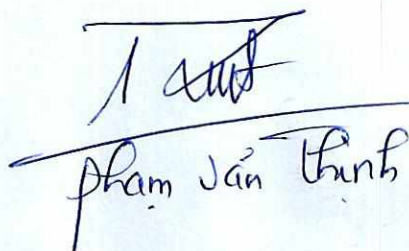 Phạm Văn Thịnh